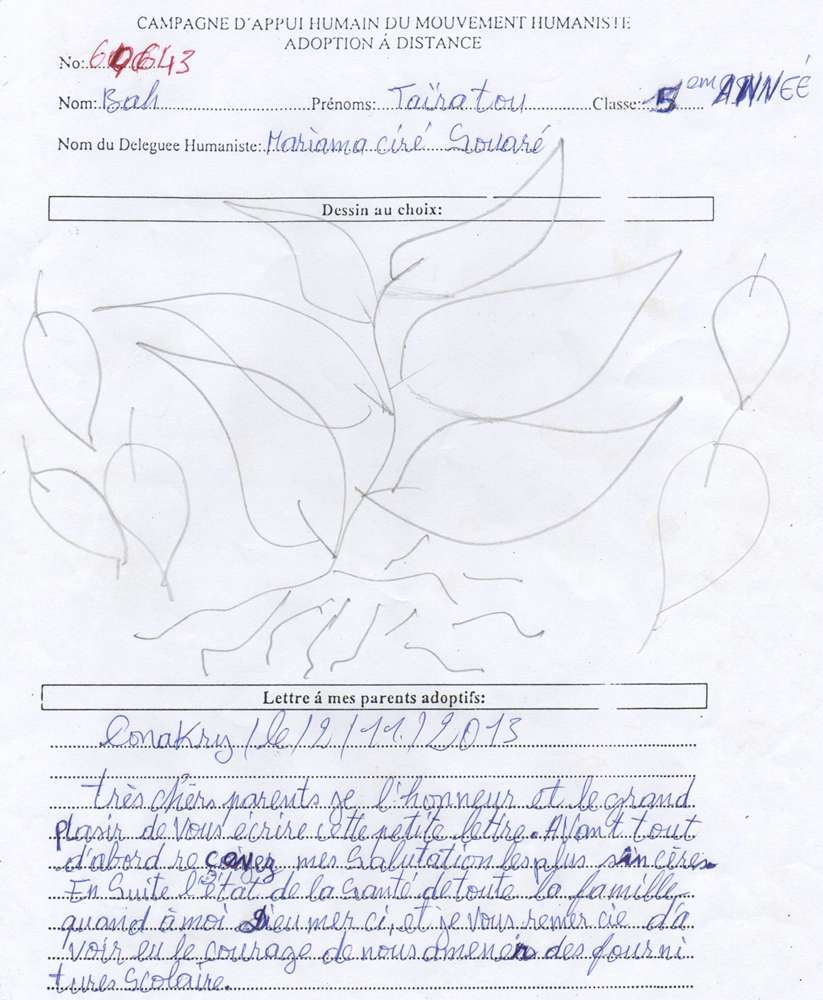 CAMPAGNE D'APPUI HUMAIN DU MOUVEMENT HUMANISTE
ADOPTION Á DISTANCE
No:
Nom: Bah Prénoms: Taïratou Classe: 5 em ANNEÉ
Nom du Deleguee Humaniste: Mariama ciré Souaré
Dessin au choix:
Lettre á mes parents adoptifs:
Conakry /le/2/11/2013
très chèrs parents je l'honneur et le grand
plasir de vous écrire cette petite lettre. Avant tout
d'abord recevez mes Salutation les plus sincères
En Suite l'état de la Santé de toute la famille,
quand à moi Dieu merci, et je vous remercie d'a
voir eu le courage de nous amener des fourni
tures Scolaire.